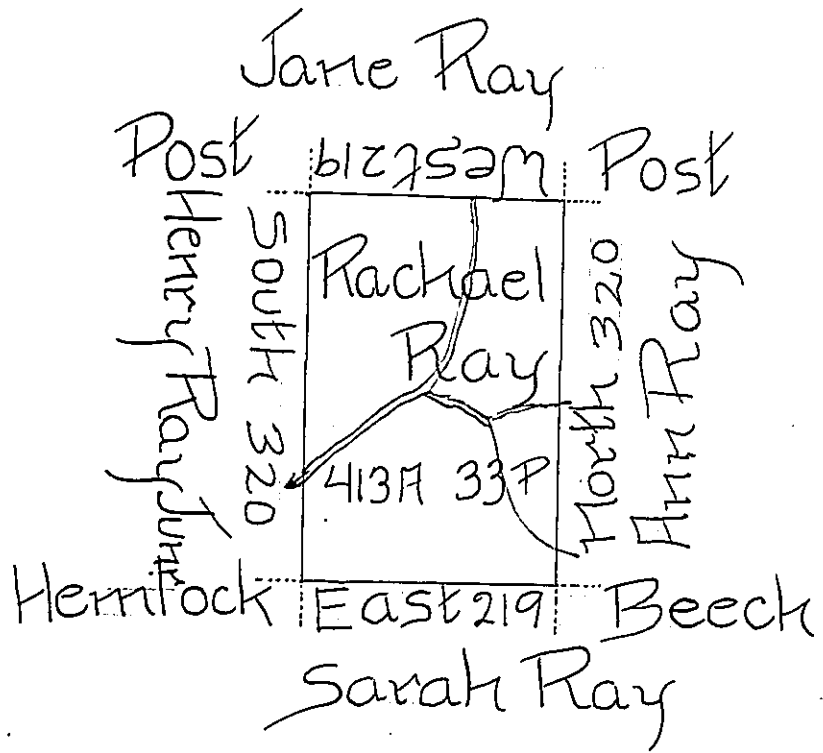 Jane Ray
Post
West 219
Post
Henry Ray Junr
South 320
Rachael
Ray
North 320
Ann Ray
413A 33P
Hemlock
East 219
Beech
Sarah Ray